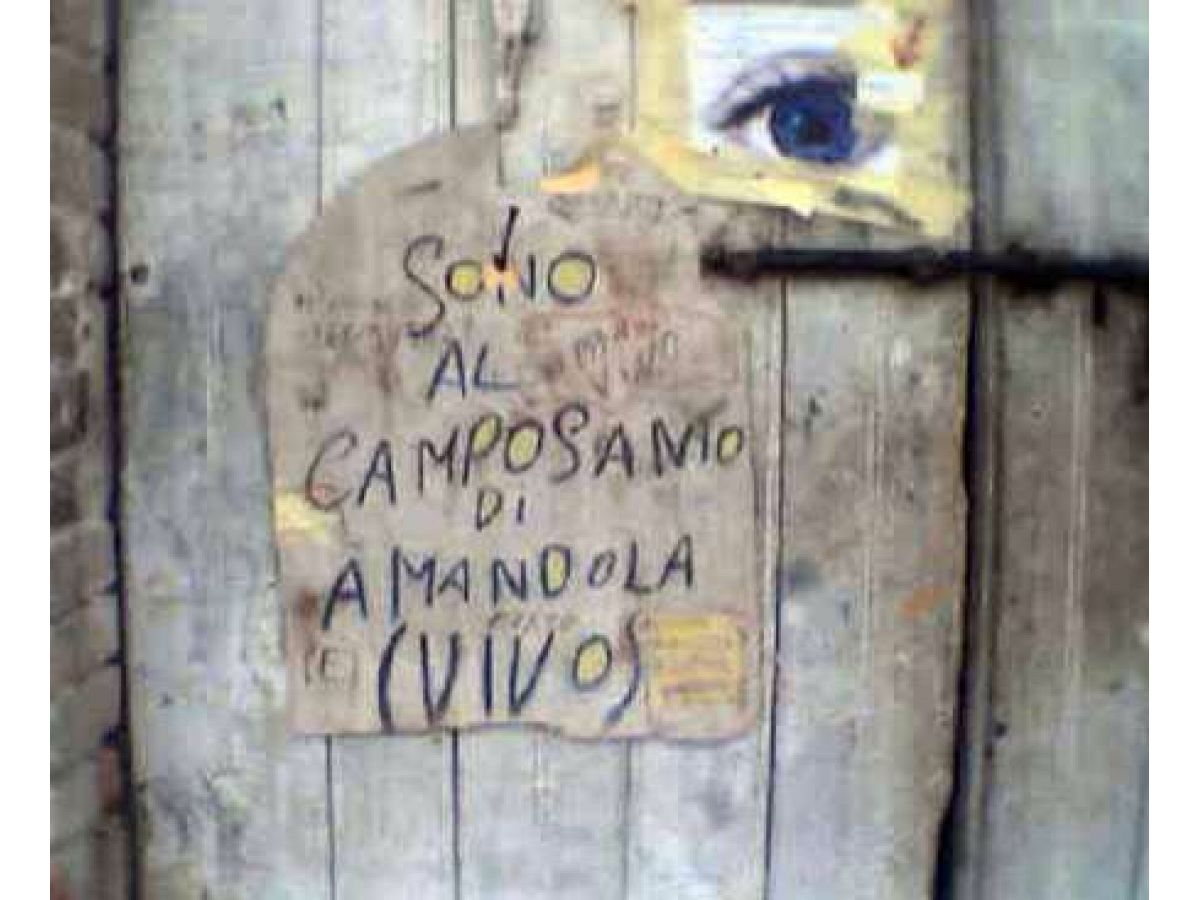 SONO
AL
CAMPOSANTO
DI
AMANDOLA
(VIVO)